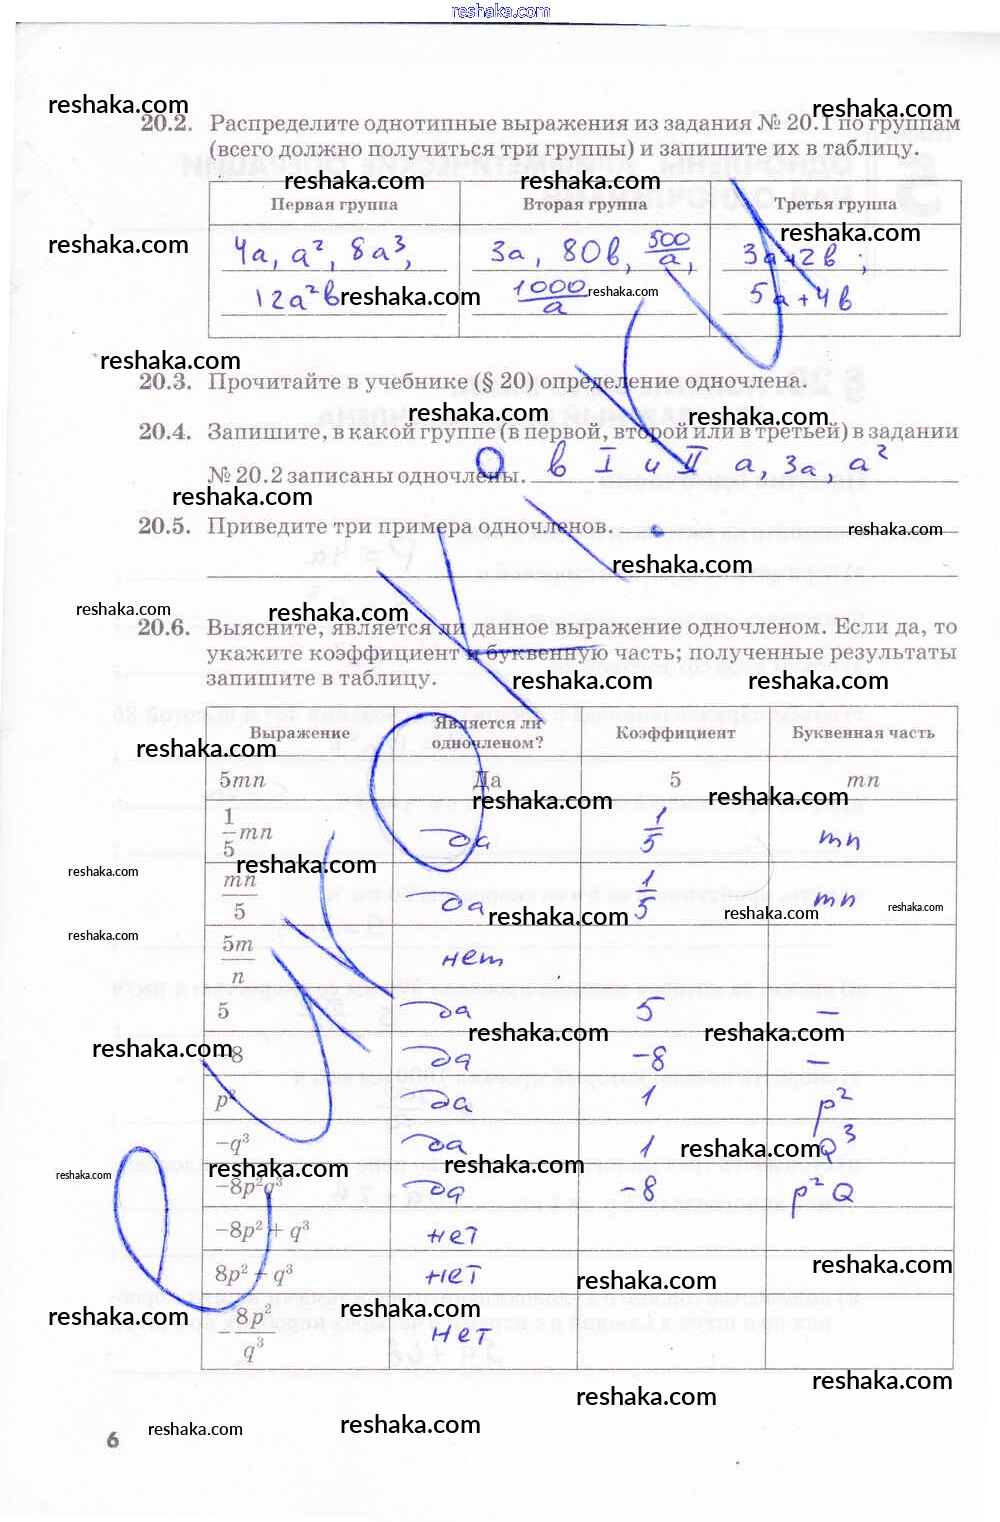 reshaka.com
reshaka.com reshaka.com
20.2. Распределите однотипные выражения из задания № 20.1 по группам
(всего должно получиться три группы) и запишите их в таблицу.
reshaka.com reshaka.com
Первая группа Вторая группа Третья группа
reshaka.com reshaka.com
4a, a², 8a³, 3a, 80в, 500/a, 3a+2в;
12a²в 1000/a 5a+4в
reshaka.com reshaka.com
reshaka.com
20.3. Прочитайте в учебнике (§ 20) определение одночлена.
reshaka.com
20.4. Запишите, в какой группе (в первой, второй или в третьей) в задании
№ 20.2 записаны одночлены. в I и II a, 3a, a²
reshaka.com
20.5. Приведите три примера одночленов.
reshaka.com
reshaka.com
reshaka.com reshaka.com
20.6. Выясните, является ли данное выражение одночленом. Если да, то
укажите коэффициент и буквенную часть; полученные результаты
запишите в таблицу.
reshaka.com reshaka.com
Выражение Является ли одночленом? Коэффициент Буквенная часть
reshaka.com
5mn Да 5 mn
reshaka.com reshaka.com
1/5 mn да 1/5 mn
reshaka.com reshaka.com
mn/5 да 1/5 mn
reshaka.com reshaka.com reshaka.com
reshaka.com
5m/n нет
5 да 5 –
reshaka.com reshaka.com
reshaka.com
-8 да -8 –
p² да 1 p²
−q³ да 1 Q³
reshaka.com
reshaka.com reshaka.com reshaka.com
−8p²q³ да -8 p²Q
−8p² + q³ нет
8p² − q³ нет
reshaka.com reshaka.com
reshaka.com reshaka.com
−8p²/q³ нет
reshaka.com reshaka.com
reshaka.com reshaka.com
6